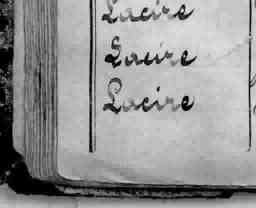 Lacire
Lacire
Lacire